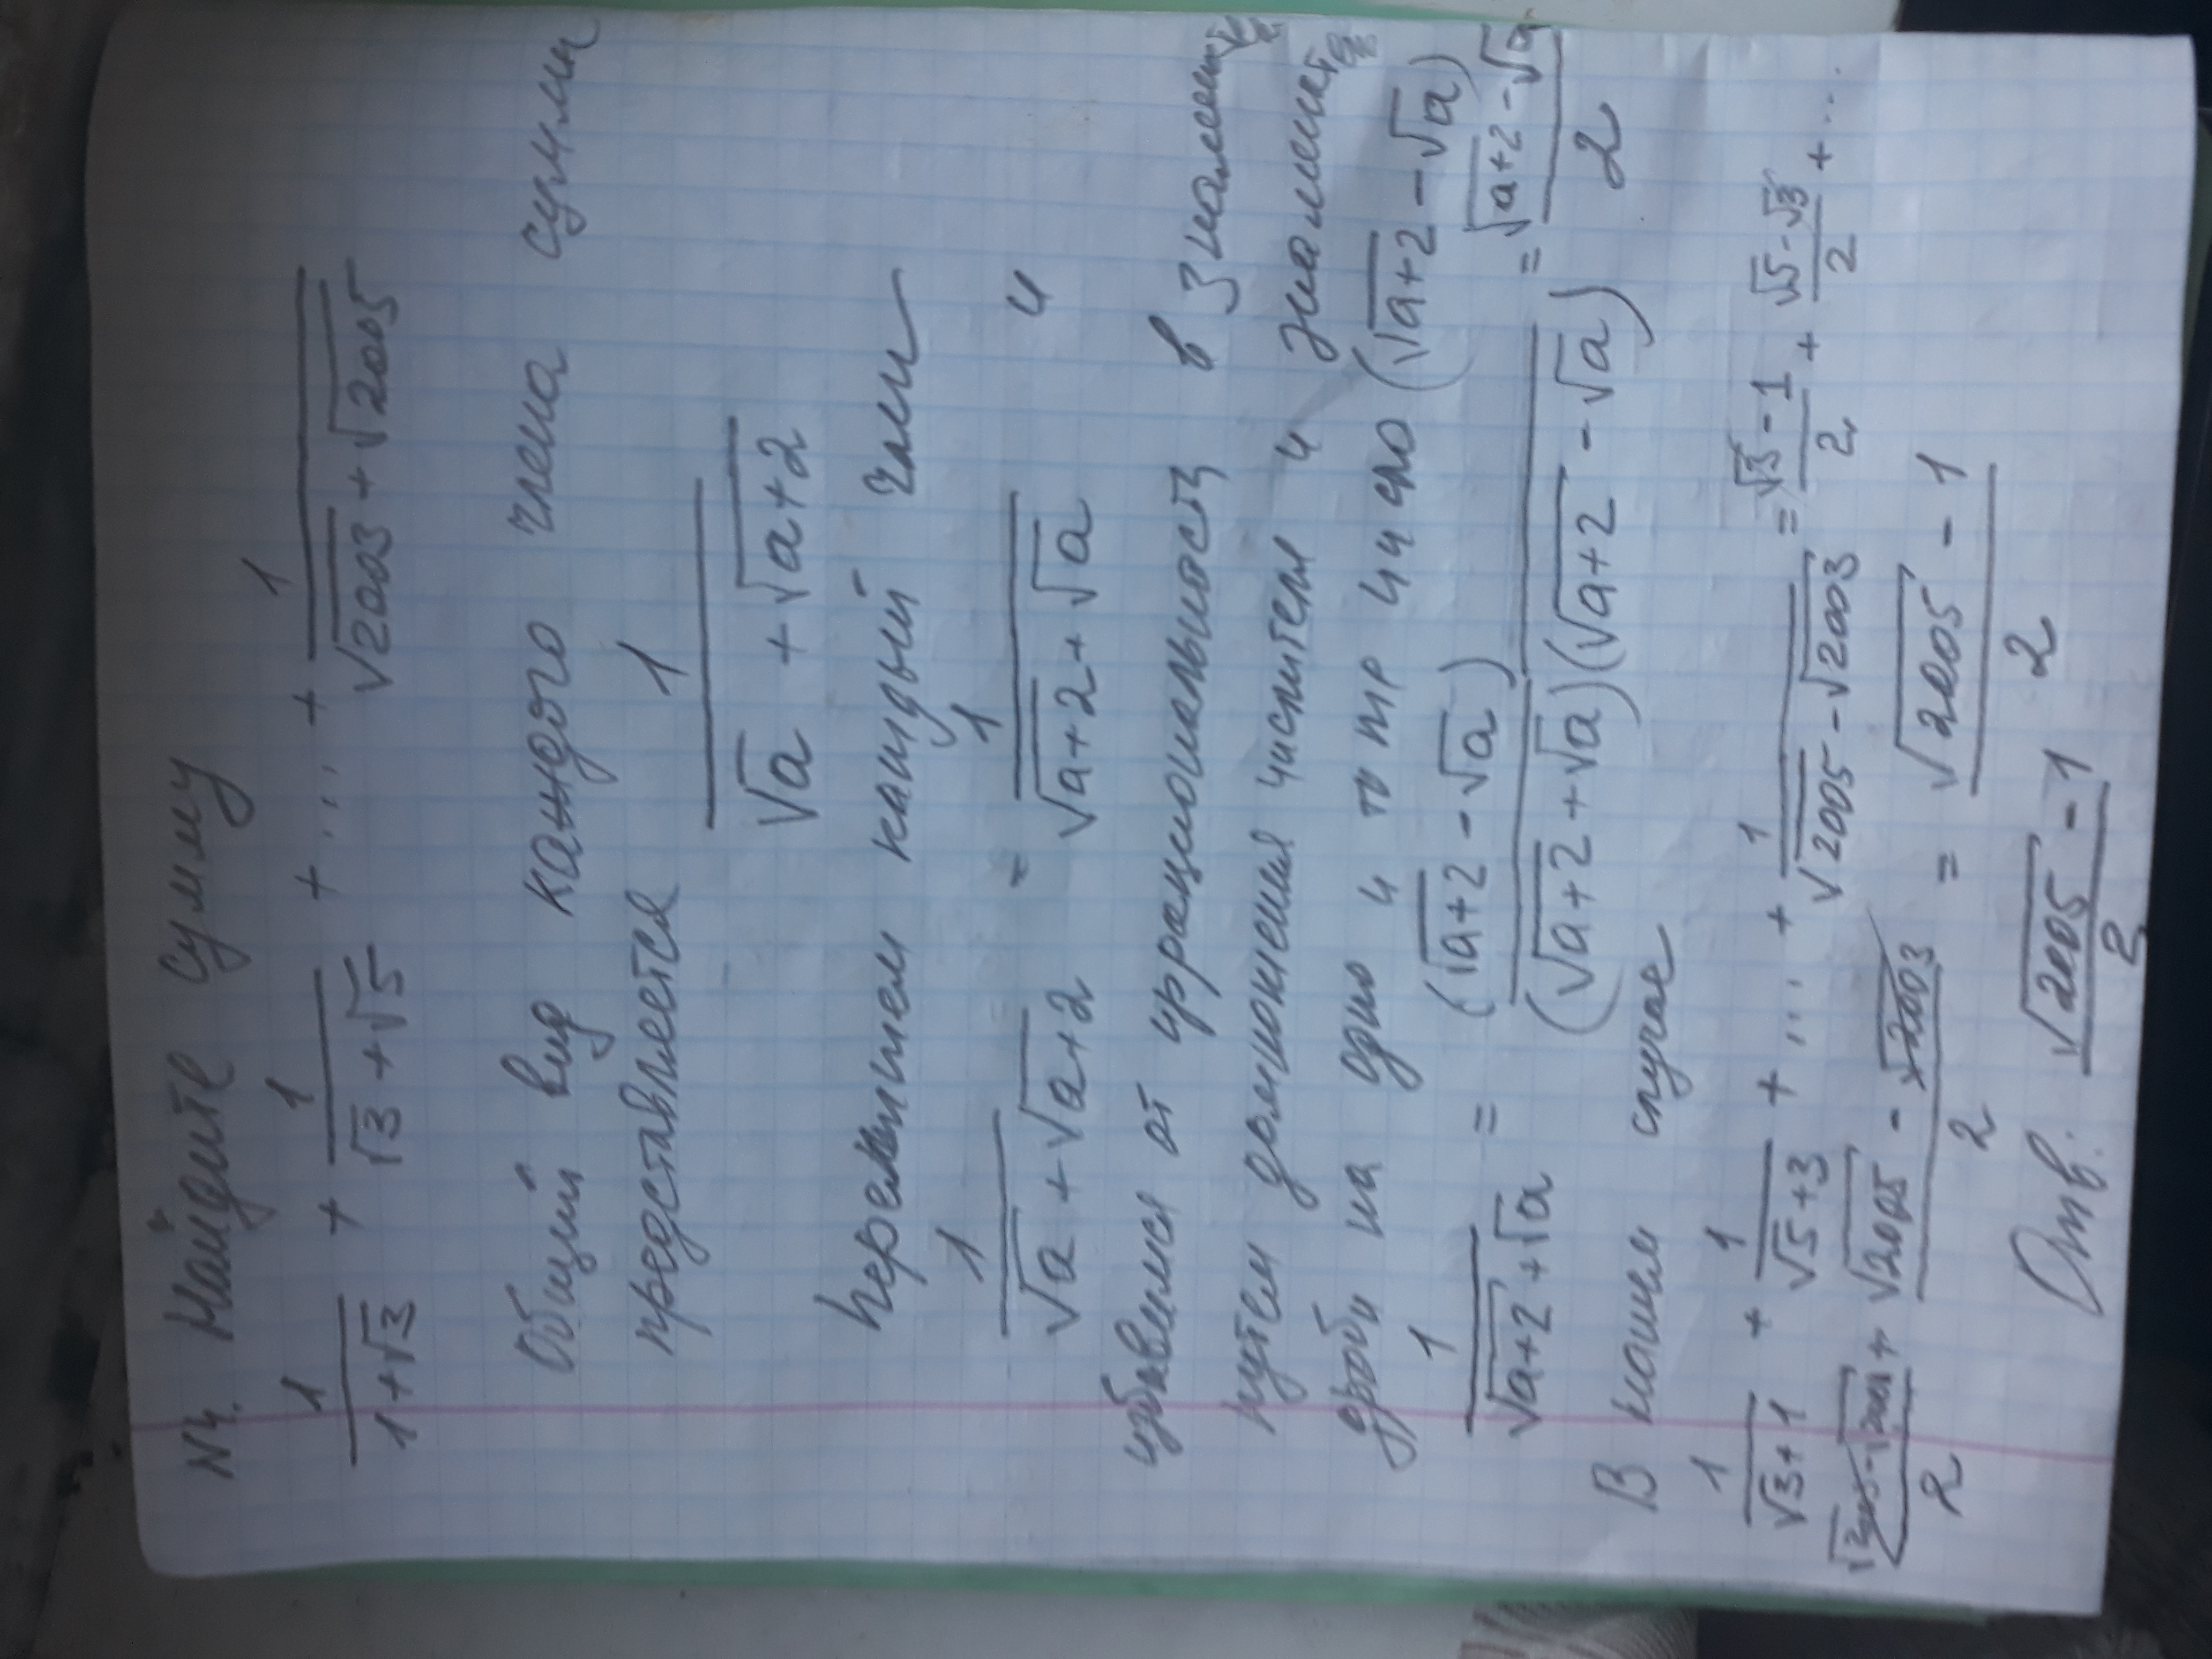 N4. Найдите сумму
1/(1+√3) + 1/(√3+√5) + ... + 1/(√2003+√2005)
Общий вид каждого члена суммы
представляется 1/(√a + √(a+2))
Перепишем каждый член
1/(√a+√(a+2)) = 1/(√(a+2)+√a) и
избавимся от иррациональности в знамен
путем домножения числителя и знаменат
дроби на одно и то же число (√(a+2) - √a)
1/(√(a+2)+√a) = (√(a+2)-√a)/((√(a+2)+√a)(√(a+2)-√a)) = (√(a+2)-√a)/2
В нашем случае
1/(√3+1) + 1/(√5+3) + ... + 1/(√2005-√2003) = (√3-1)/2 + (√5-√3)/2 + ...
+ (√2005-√2003)/2 = (√2005-1)/2
Отв. (√2005-1)/2